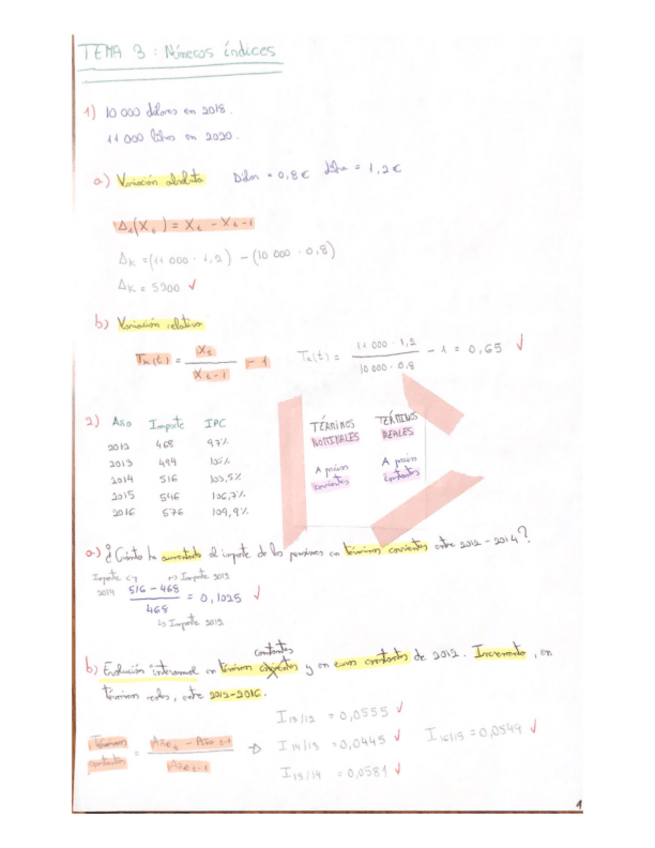 TEMA 3: Números índices
1) 10 000 dólares en 2018.
11 000 libras en 2020.
a) Variación absoluta Dólar = 0,8 € libra = 1,2 €
Δ₁(Xₜ) = Xₜ - Xₜ₋₁
Δₖ = (11 000 · 1,2) - (10 000 · 0,8)
Δₖ = 5200 ✓
b) Variación relativa
Tₓ(t) = Xₜ / Xₜ₋₁ - 1 Tₓ(t) = 11 000 · 1,2 / 10 000 · 0,8 - 1 = 0,65 ✓
2) Año Importe IPC
2012 468 97%
2013 494 100%
2014 516 103,5%
2015 546 106,7%
2016 576 109,9%
TÉRMINOS NOMINALES
A precios corrientes
TÉRMINOS REALES
A precios constantes
a) ¿Cuánto ha aumentado el importe de las pensiones en términos corrientes entre 2012-2014?
Importe 2014 ↦ Importe 2012
516 - 468 / 468 = 0,1025 ✓
↳ Importe 2012
constantes
b) Evolución interanual en términos corrientes y en euros constantes de 2012. Incremento, en
términos reales, entre 2012-2016.
Términos corrientes = Añoₜ - Añoₜ₋₁ / Añoₜ₋₁ ⇒
I 13/12 = 0,0555 ✓
I 14/13 = 0,0445 ✓ I 16/15 = 0,0549 ✓
I 15/14 = 0,0581 ✓
1